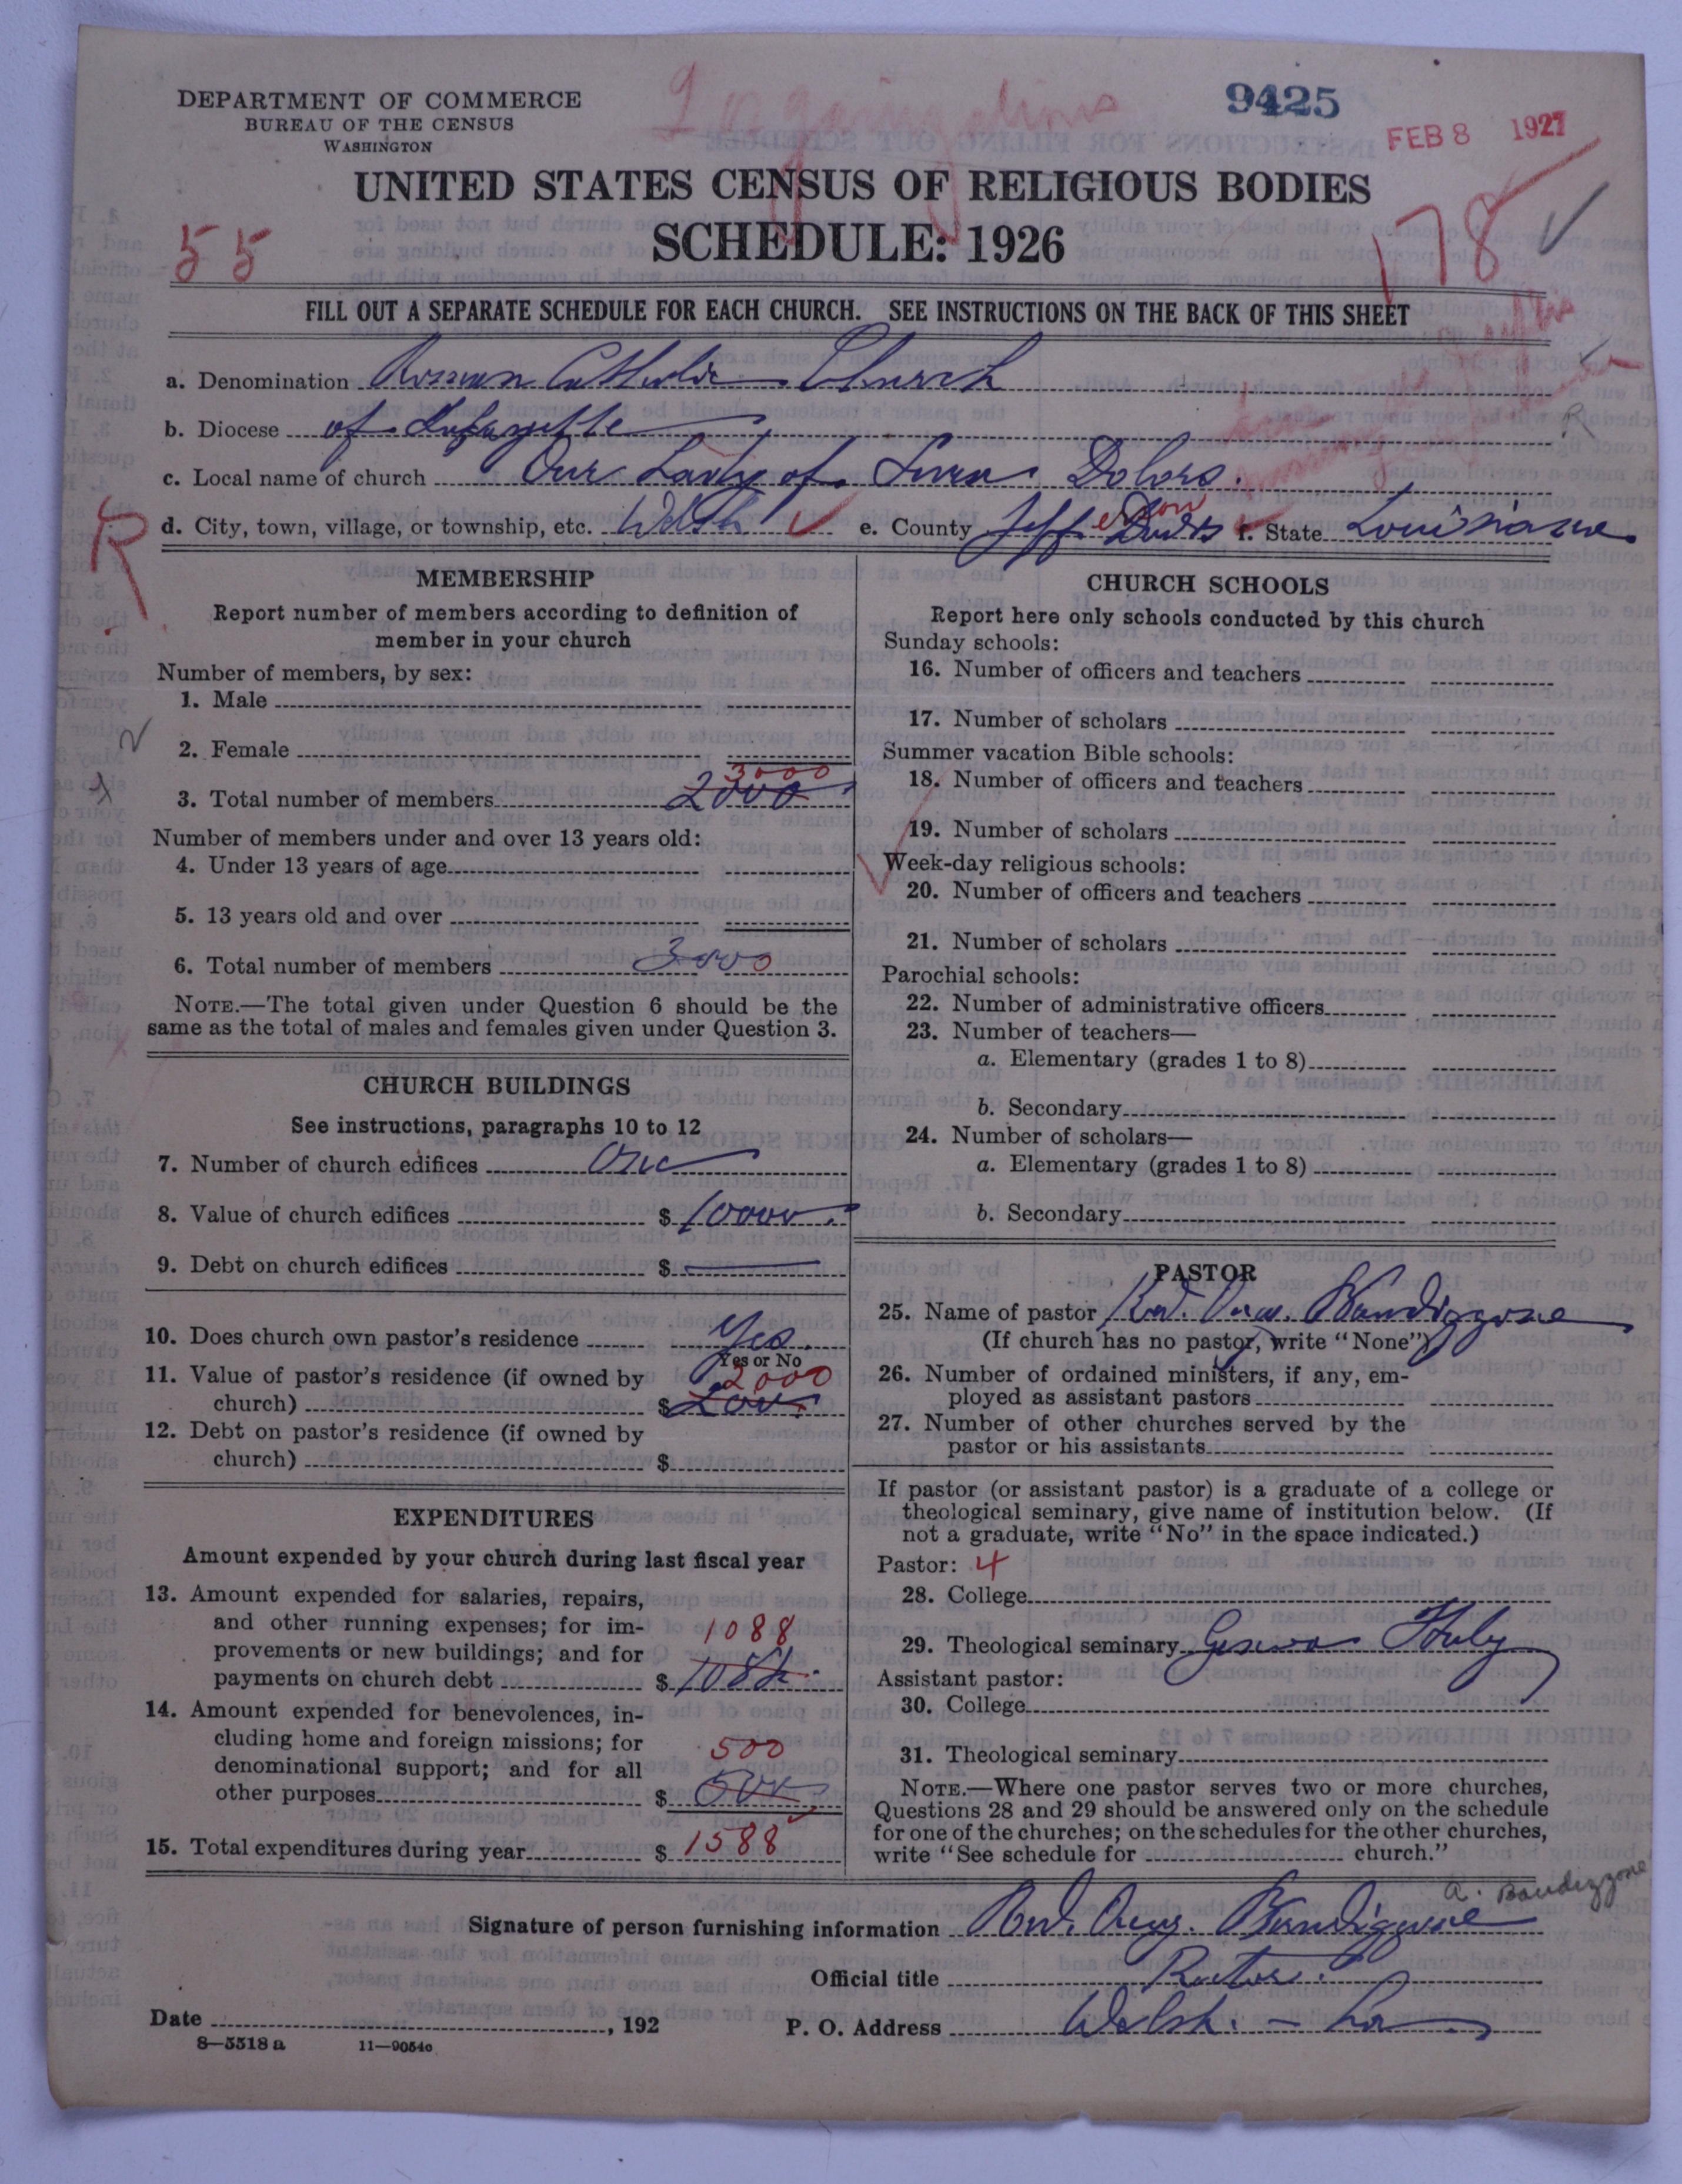 DEPARTMENT OF COMMERCE
BUREAU OF THE CENSUS
WASHINGTON
9425
FEB 8 1927
UNITED STATES CENSUS OF RELIGIOUS BODIES
SCHEDULE: 1926
55
178
FILL OUT A SEPARATE SCHEDULE FOR EACH CHURCH. SEE INSTRUCTIONS ON THE BACK OF THIS SHEET
a. Denomination Roman Catholic Church
b. Diocese of Lafayette
c. Local name of church Our Lady of Seven Dolors.
R
d. City, town, village, or township, etc. Welsh e. County Jefferson Davis f. State Louisiana.
MEMBERSHIP
Report number of members according to definition of
member in your church
Number of members, by sex:
1. Male
2. Female
3000
3. Total number of members 2000
Number of members under and over 13 years old:
4. Under 13 years of age
5. 13 years old and over
6. Total number of members 3000
NOTE.—The total given under Question 6 should be the
same as the total of males and females given under Question 3.
CHURCH BUILDINGS
See instructions, paragraphs 10 to 12
7. Number of church edifices One
8. Value of church edifices $ 10000.
9. Debt on church edifices $ —
10. Does church own pastor's residence Yes.
Yes or No
11. Value of pastor's residence (if owned by 2000
church) $
12. Debt on pastor's residence (if owned by
church) $
EXPENDITURES
Amount expended by your church during last fiscal year
13. Amount expended for salaries, repairs,
and other running expenses; for im-
1088
provements or new buildings; and for
payments on church debt $ 1088.
14. Amount expended for benevolences, in-
cluding home and foreign missions; for
500
denominational support; and for all
other purposes $ 500
15. Total expenditures during year $ 1588
CHURCH SCHOOLS
Report here only schools conducted by this church
Sunday schools:
16. Number of officers and teachers
17. Number of scholars
Summer vacation Bible schools:
18. Number of officers and teachers
19. Number of scholars
Week-day religious schools:
20. Number of officers and teachers
21. Number of scholars
Parochial schools:
22. Number of administrative officers
23. Number of teachers—
a. Elementary (grades 1 to 8)
b. Secondary
24. Number of scholars—
a. Elementary (grades 1 to 8)
b. Secondary
PASTOR
25. Name of pastor Revd. Aug. Bandizzone
(If church has no pastor, write "None")
26. Number of ordained ministers, if any, em-
ployed as assistant pastors
27. Number of other churches served by the
pastor or his assistants
If pastor (or assistant pastor) is a graduate of a college or
theological seminary, give name of institution below. (If
not a graduate, write "No" in the space indicated.)
Pastor: 4
28. College
29. Theological seminary Genova Italy
Assistant pastor:
30. College
31. Theological seminary
NOTE.—Where one pastor serves two or more churches,
Questions 28 and 29 should be answered only on the schedule
for one of the churches; on the schedules for the other churches,
write "See schedule for church."
a. Bandizzone
Signature of person furnishing information Revd. Aug. Bandizzone
Official title Rector.
Date , 192
P. O. Address Welsh. - La
8—5518 a 11—9054c